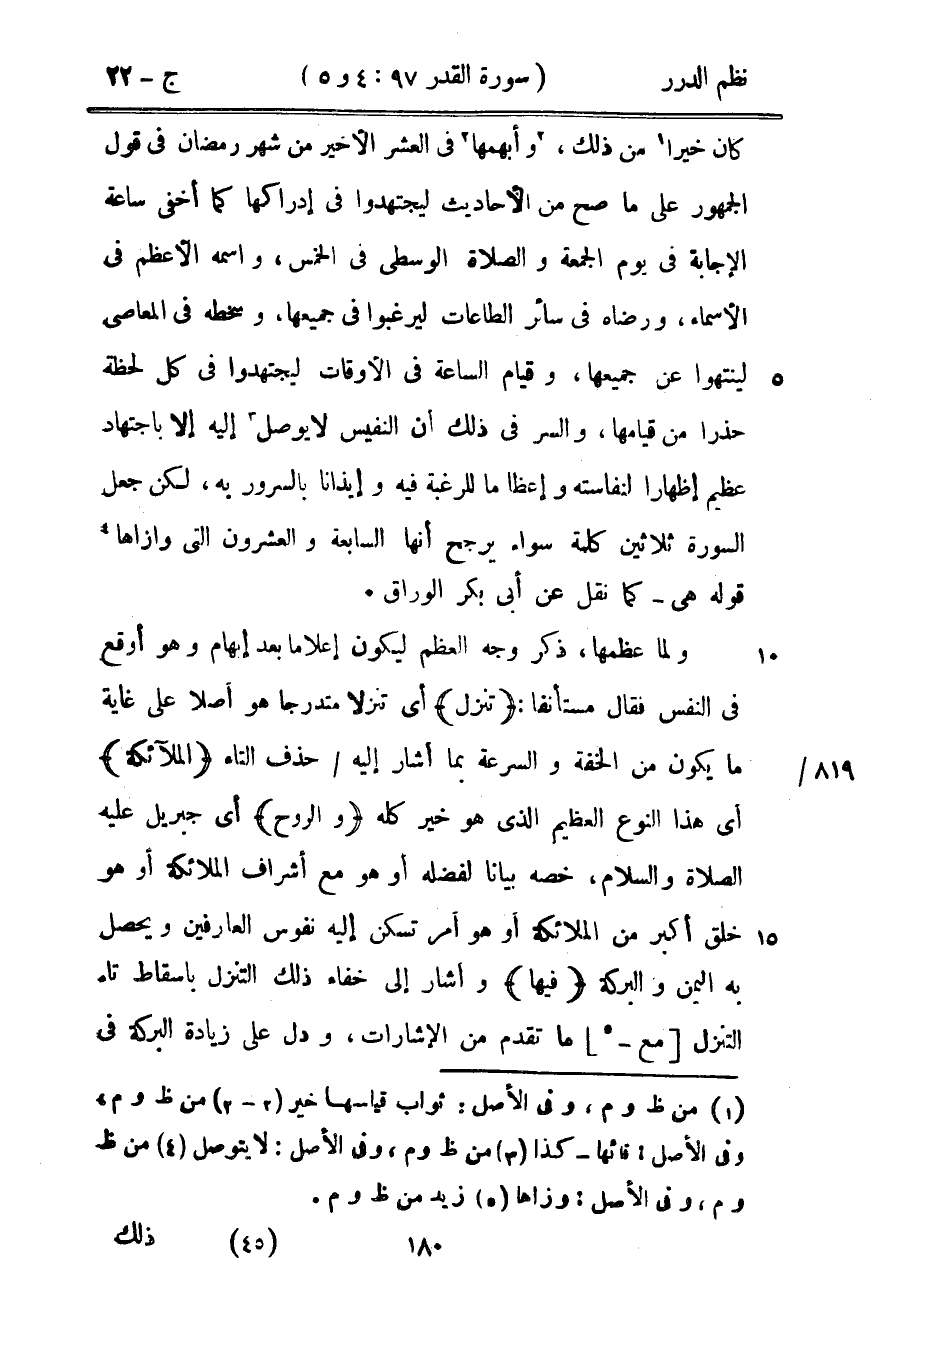 نظم الدرر ( سورة القدر ٩٧ : ٤ و ٥ ) ج - ٢٢
كان خيرا١ من ذلك ، ٢و أبهمها٢ فى العشر الأخير من شهر رمضان فى قول
الجمهور على ما صح من الأحاديث ليجتهدوا فى إدراكها كما أخفى ساعة
الإجابة فى يوم الجمعة و الصلاة الوسطى فى الخمس ، و اسمه الأعظم فى
الأسماء ، و رضاه فى سائر الطاعات ليرغبوا فى جميعها ، و سخطه فى المعاصى
٥ لينتهوا عن جميعها ، و قيام الساعة فى الأوقات ليجتهدوا فى كل لحظة
حذرا من قيامها ، و السر فى ذلك أن النفيس لا يوصل٣ إليه إلا باجتهاد
عظيم إظهارا لنفاسته و إعظاما للرغبة فيه و إيذانا بالسرور به ، لكن جعل
السورة ثلاثين كلمة سواء يرجح أنها السابعة و العشرون التى وازاها٤
قوله هى - كما نقل عن أبى بكر الوراق .
١٠ و لما عظمها ، ذكر وجه العظم ليكون إعلاما بعد إبهام و هو أوقع
فى النفس فقال مستأنفا : ﴿ تنزل ﴾ أى تنزلا متدرجا هو أصلا على غاية
ما يكون من الخفة و السرعة بما أشار إليه / حذف التاء ﴿ الملآئكة ﴾ / ٨١٩
أى هذا النوع العظيم الذى هو خير كله ﴿ و الروح ﴾ أى جبريل عليه
الصلاة والسلام ، خصه بيانا لفضله أو هو مع أشراف الملائكة أو هو
١٥ خلق أكبر من الملائكة أو هو أمر تسكن إليه نفوس العارفين و يحصل
به اليمن و البركة ﴿ فيها ﴾ و أشار إلى خفاء ذلك التنزل باسقاط تاء
التنزل [ مع - ٥ ] ما تقدم من الإشارات ، و دل على زيادة البركة فى
(١) من ظ و م ، و فى الأصل : ثواب قياسها خير (٢ - ٢) من ظ و م ،
وفى الأصل : فاتها - كذا (٣) من ظ و م ، وفى الأصل : لا يتوصل (٤) من ظ
و م ، و فى الأصل : وزاها (٥) زيد من ظ و م .
١٨٠ (٤٥) ذلك